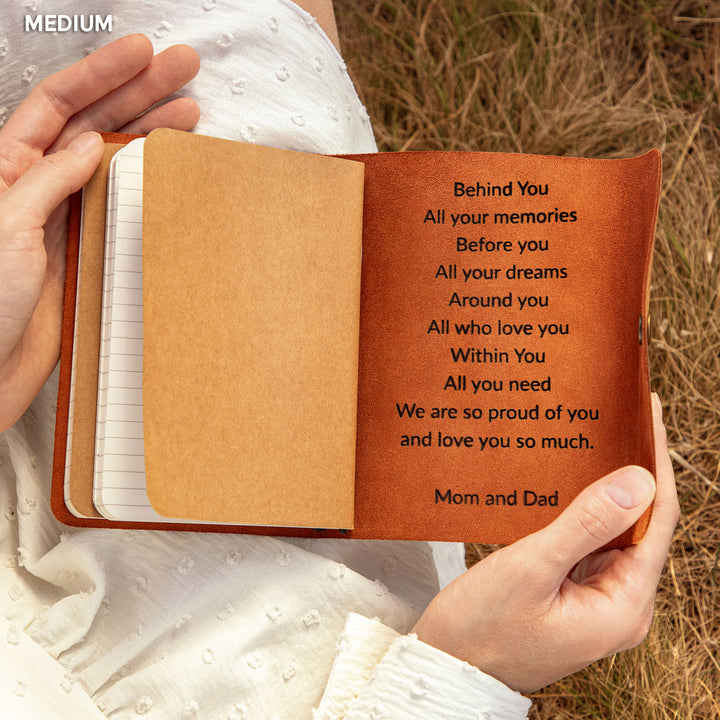 MEDIUM
Behind You
All your memories
Before you
All your dreams
Around you
All who love you
Within You
All you need
We are so proud of you
and love you so much.
Mom and Dad